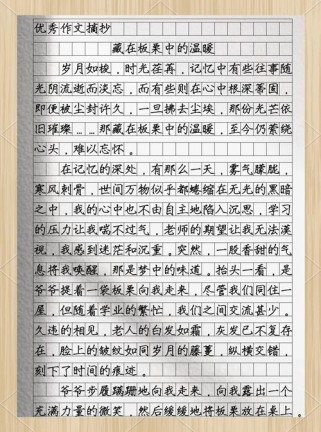 优秀作文摘抄
藏在板栗中的温暖
岁月如梭，时光荏苒，记忆中有些往事随
光阴流逝而淡忘，而有些则在心中根深蒂固，
即便被尘封许久，一旦拂去尘埃，那份光芒依
旧璀璨……那藏在板栗中的温暖，至今仍萦绕
心头，难以忘怀。
在记忆的深处，有那么一天，雾气朦胧，
寒风刺骨，世间万物似乎都蜷缩在无光的黑暗
之中，我的心中也不由自主地陷入沉思，学习
的压力让我喘不过气，老师的期望让我无法漠
视，我感到迷茫和沉重。突然，一股香甜的气
息将我唤醒，那是梦中的味道。抬头一看，是
爷爷提着一袋板栗向我走来，尽管我们同住一
屋，但随着学业的繁忙，我们之间交流甚少。
久违的相见，老人的白发如霜，灰发已不复存
在，脸上的皱纹如同岁月的藤蔓，纵横交错，
刻下了时间的痕迹。
爷爷步履蹒跚地向我走来，向我露出一个
充满力量的微笑，然后缓缓地将板栗放在桌上